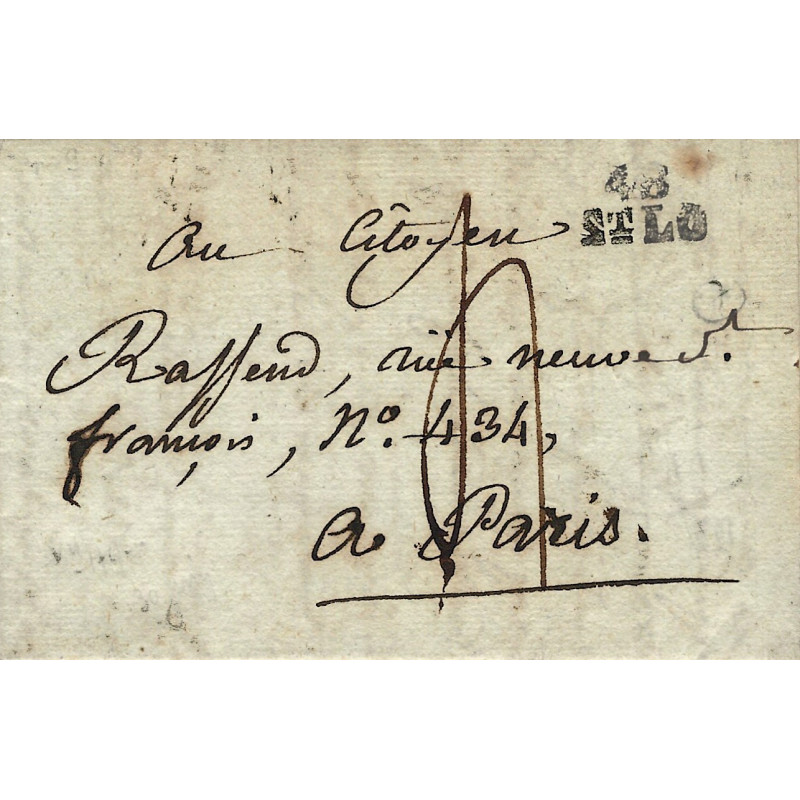 48
St LO
Au Citoyen
Raffend, rüe neuve St.
françois, No. 434,
a Paris.